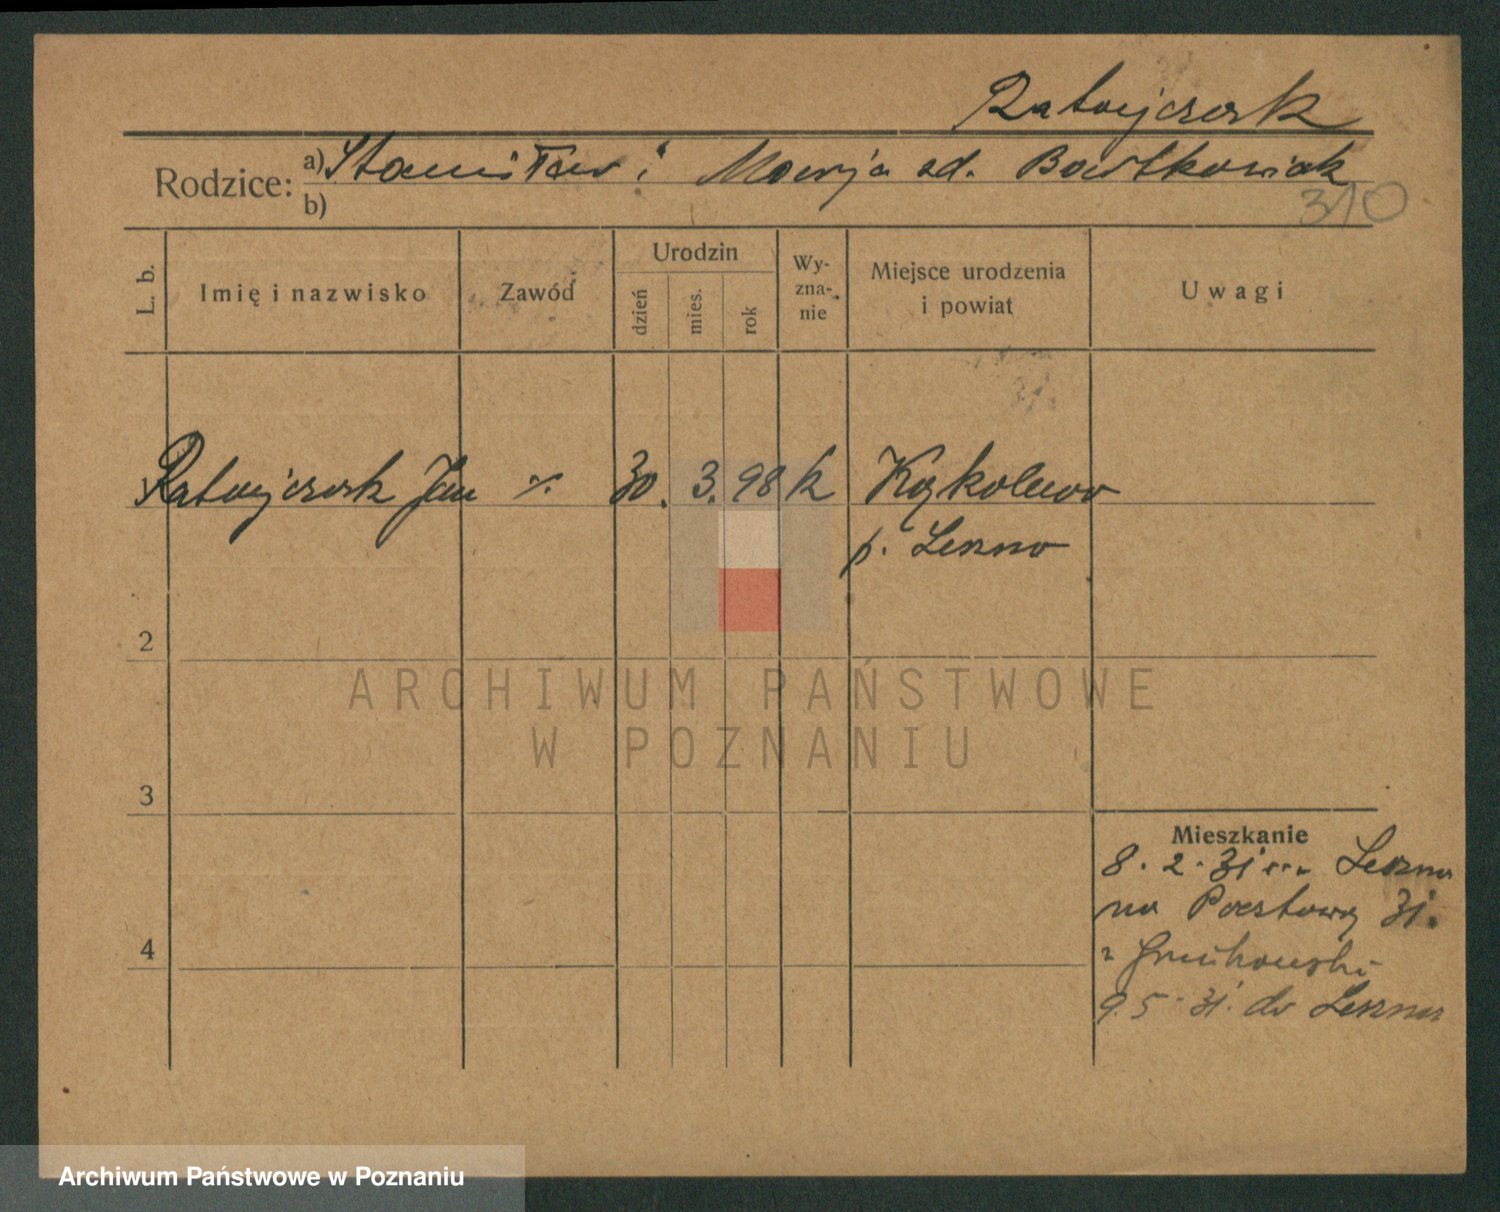 Ratajczak
Rodzice: a) Stanisław i Marja zd. Bartkowiak
b)
310
L. b.
Imię i nazwisko
Zawód
Urodzin
dzień
mies.
rok
Wy-
zna-
nie
Miejsce urodzenia
i powiat
Uwagi
Ratajczak Jan ٪ 30. 3. 98 k Kąkolewo
p. Leszno
2
3
4
ARCHIWUM PAŃSTWOWE
W POZNANIU
Mieszkanie
8. 2. 31 Leszna
na Pocztową 31.
9. 5. 31. do Leszna
Archiwum Państwowe w Poznaniu